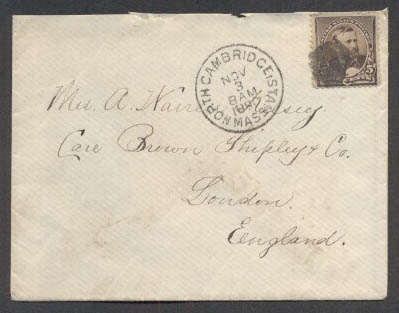 NORTH CAMBRIDGE STA.
NOV
3
8 AM
1892
MASS.
5
Mrs. A.
Care Brown Shipley & Co.
London.
England.